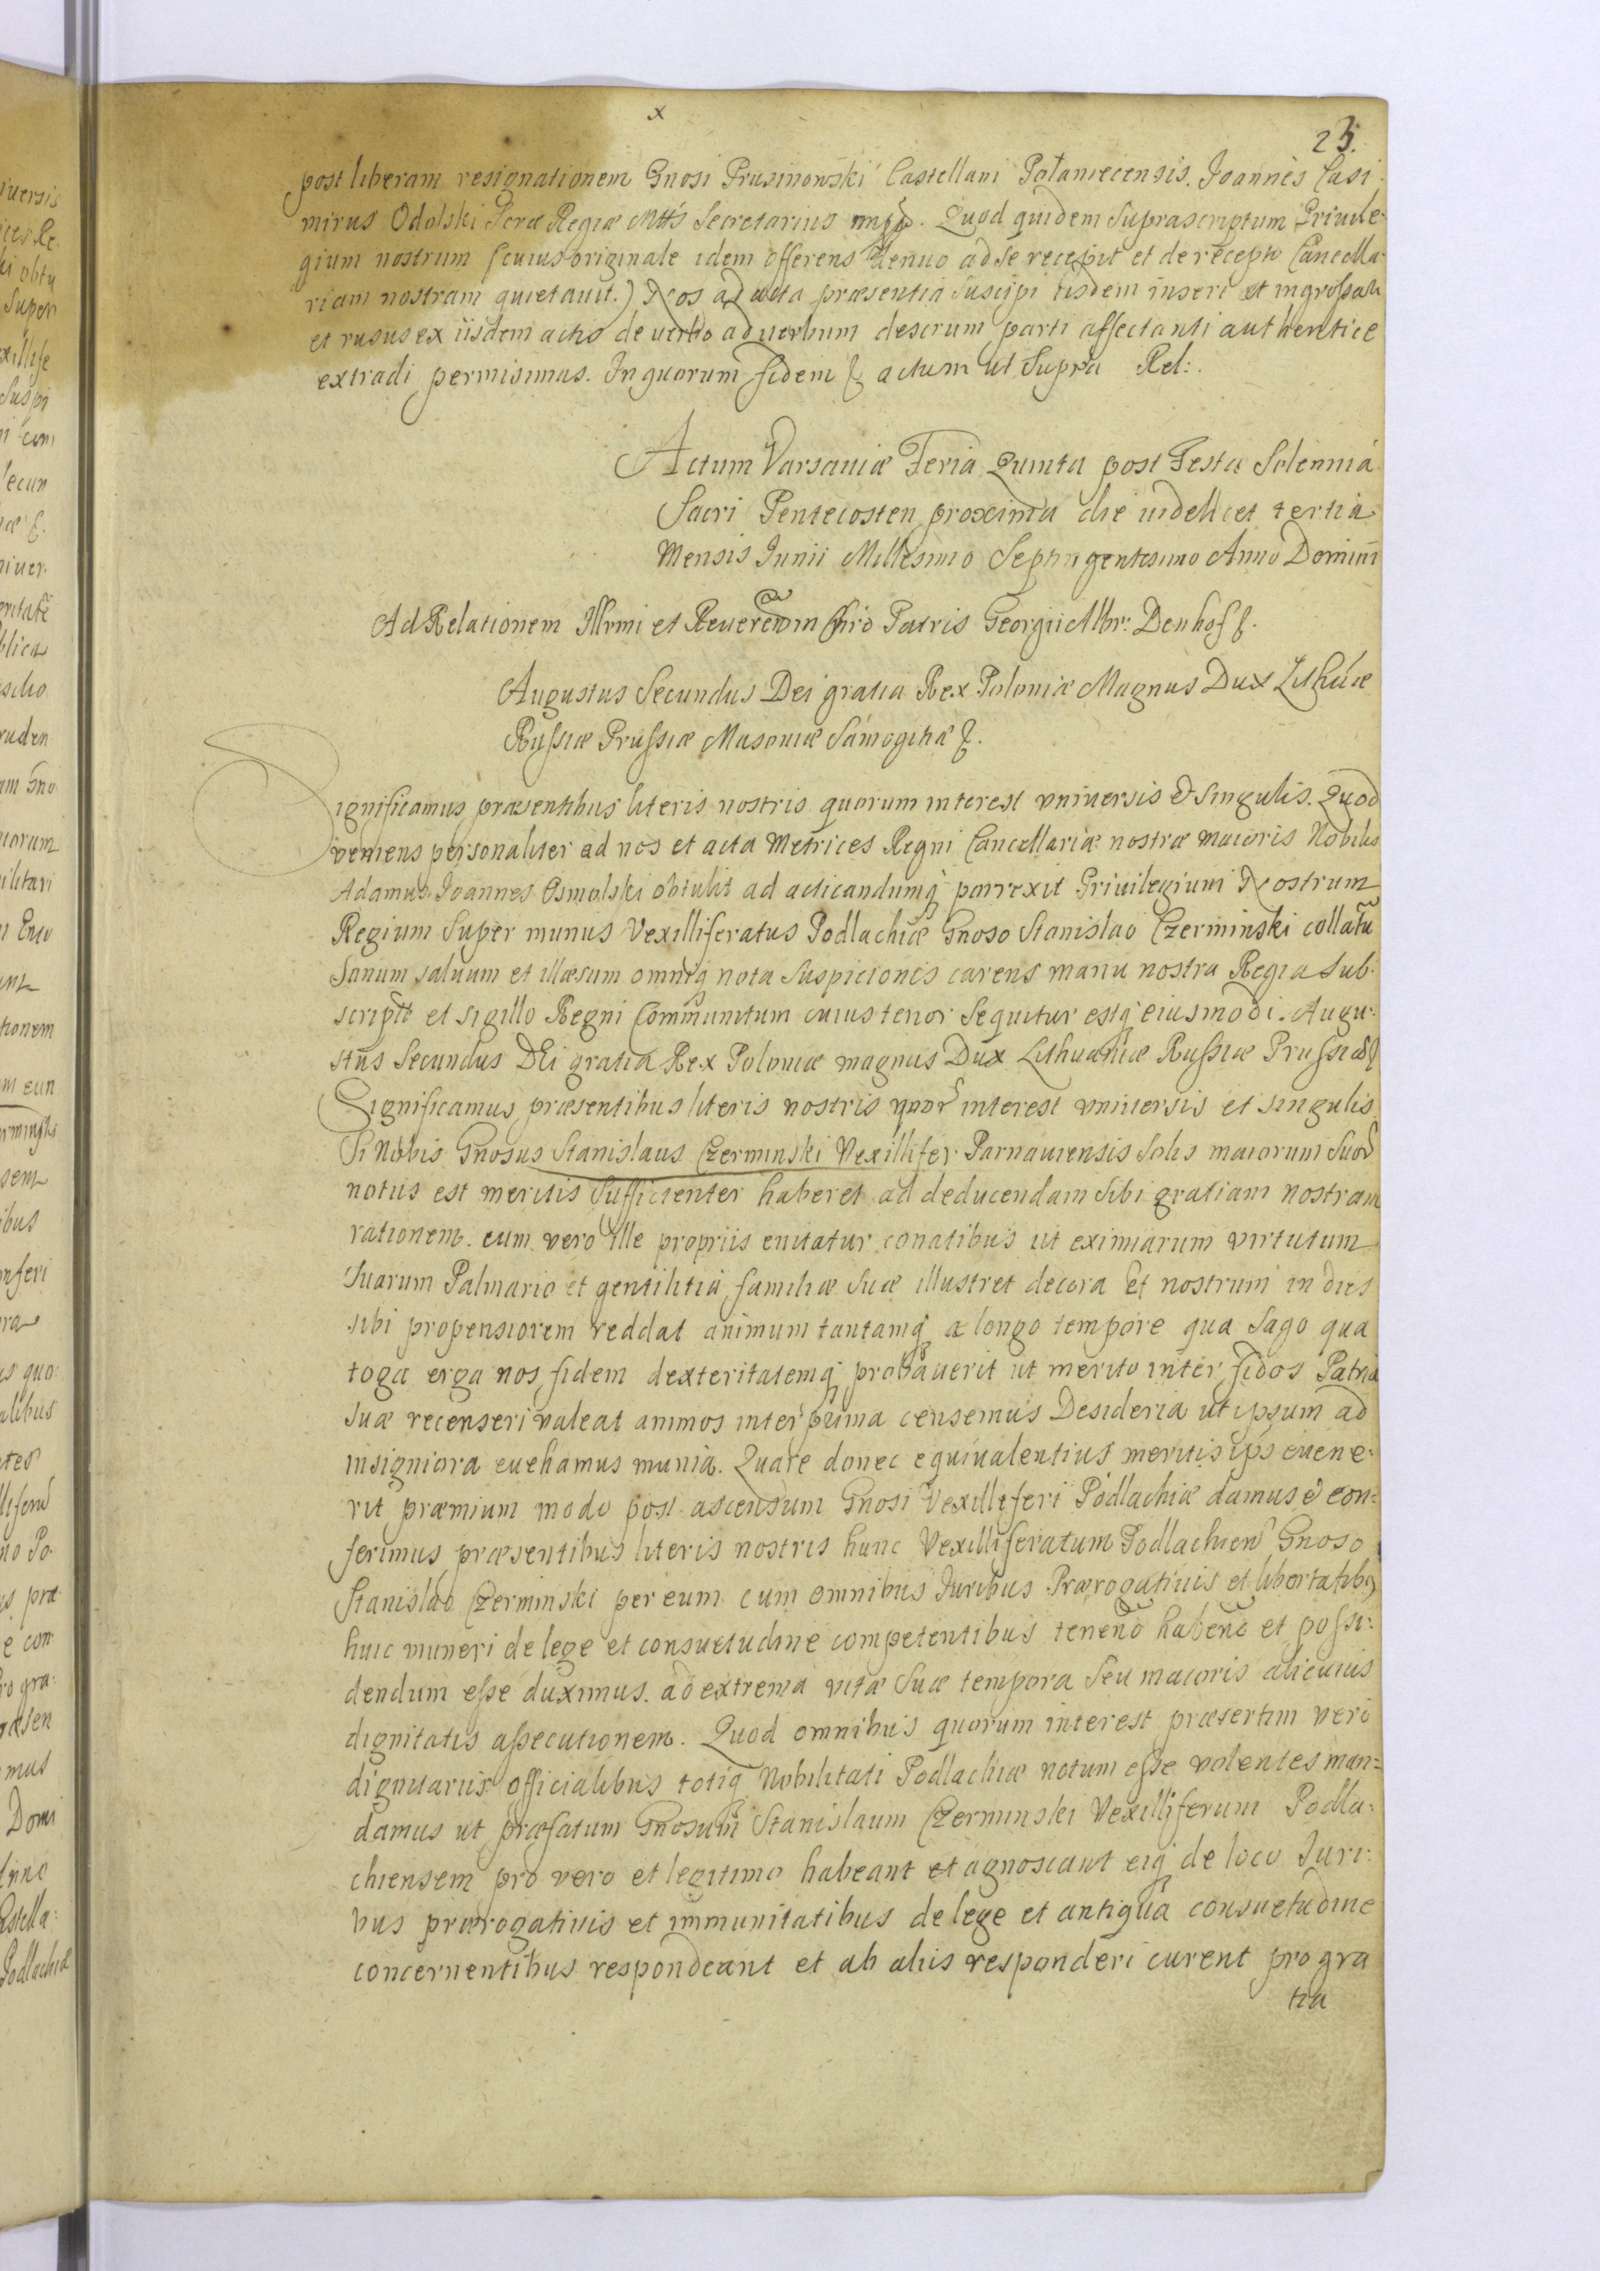 x
25.
post liberam resignationem Gnosi Prusinowski Castellani Połaniecensis. Joannes Casi-
mirus Odolski Scræ Regiæ Mttis Secretarius mpp. Quod quidem Suprascriptum Priuile-
gium nostrum (cuius originale idem offerens denuo ad se recepit et de recepto Cancella-
riam nostram quietauit.) Nos ad acta præsentia suscipi iisdem inseri et ingrossari
et rusus ex iisdem actis de verbo ad verbum descrum parti affectanti authentice
extradi permisimus. In quorum fidem & actum ut Supra Rel:.
Actum Varsaviæ Feria Quinta post Festa Solennia
Sacri Pentecosten proxima die videlicet tertia
Mensis Junii Millesimo Septingentesimo Anno Domini
Ad Relationem Illrmi et Reverendm Chrō Patris Georgii Albr: Denhof &.
Augustus Secundus Dei gratia Rex Poloniæ Magnus Dux Lithuæ
Russiæ Prussiæ Masouiæ Samogitiæ &.
Significamus præsentibus literis nostris quorum interest vniuersis & Singulis. Quod
veniens personaliter ad nos et acta Metrices Regni Cancellariæ nostræ maioris Nobilis
Adamus Joannes Osmolski obtulit ad acticandumq porrexit Priuilegium Nostrum
Regium Super munus Vexilliferatus Podlachiæ Gnoso Stanislao Czerminski collatũ
Sanum saluum et illæsum omniq nota Suspicionis carens manu nostra Regia Sub-
script et sigillo Regni Communitum cuius tenor Sequitur estq eiusmodi. Augu-
stus Secundus DEi gratia Rex Poloniæ magnus Dux Lithuaniæ Russiæ Prussiæ &
Significamus præsentibus literis nostris quor interest vniuersis et singulis
Si Nobis Gnosus Stanislaus Czerminski Vexillifer Parnauiensis Solis maiorum Suor
notus est meritis Sufficienter haberet ad deducendam Sibi gratiam nostram
rationem. cum vero ille propriis enitatur conatibus ut eximiarum virtutum
Suarum Palmario et gentilitia familiæ Suæ illustret decora Et nostrum in dies
sibi propensiorem reddat animum tantamq a longo tempore qua Sago qua
toga erga nos fidem dexteritatemq probauerit ut merito inter fidos Patriæ
Suæ recenseri valeat animos inter prima censemus Desideria ut ipsum ad
insigniora euehamus munia. Quare donec equiualentius meritis ips euene-
rit præmium modo post ascensum Gnosi Vexilliferi Podlachiæ damus & con-
ferimus præsentibus literis nostris hunc Vexilliferatum Podlachien Gnoso
Stanislao Czerminski per eum cum omnibus Juribus Prærogatiuis et libertatibq
huic muneri de lege et consuetudine competentibus tenend habend et possi-
dendum esse duximus. ad extrema vitæ Suæ tempora Seu maioris alicuius
dignitatis assecutionem. Quod omnibus quorum interest præsertim vero
dignitariis officialibus totiq Nobilitati Podlachiæ notum esse volentes man-
damus ut præfatum Gnosum Stanislaum Czerminski Vexilliferum Podla-
chiensem pro vero et legitimo habeant et agnoscant eiq de loco Juri-
bus prærogatiuis et immunitatibus de lege et antiqua consuetudine
concernentibus respondeant et ab aliis responderi curent pro gra
tia